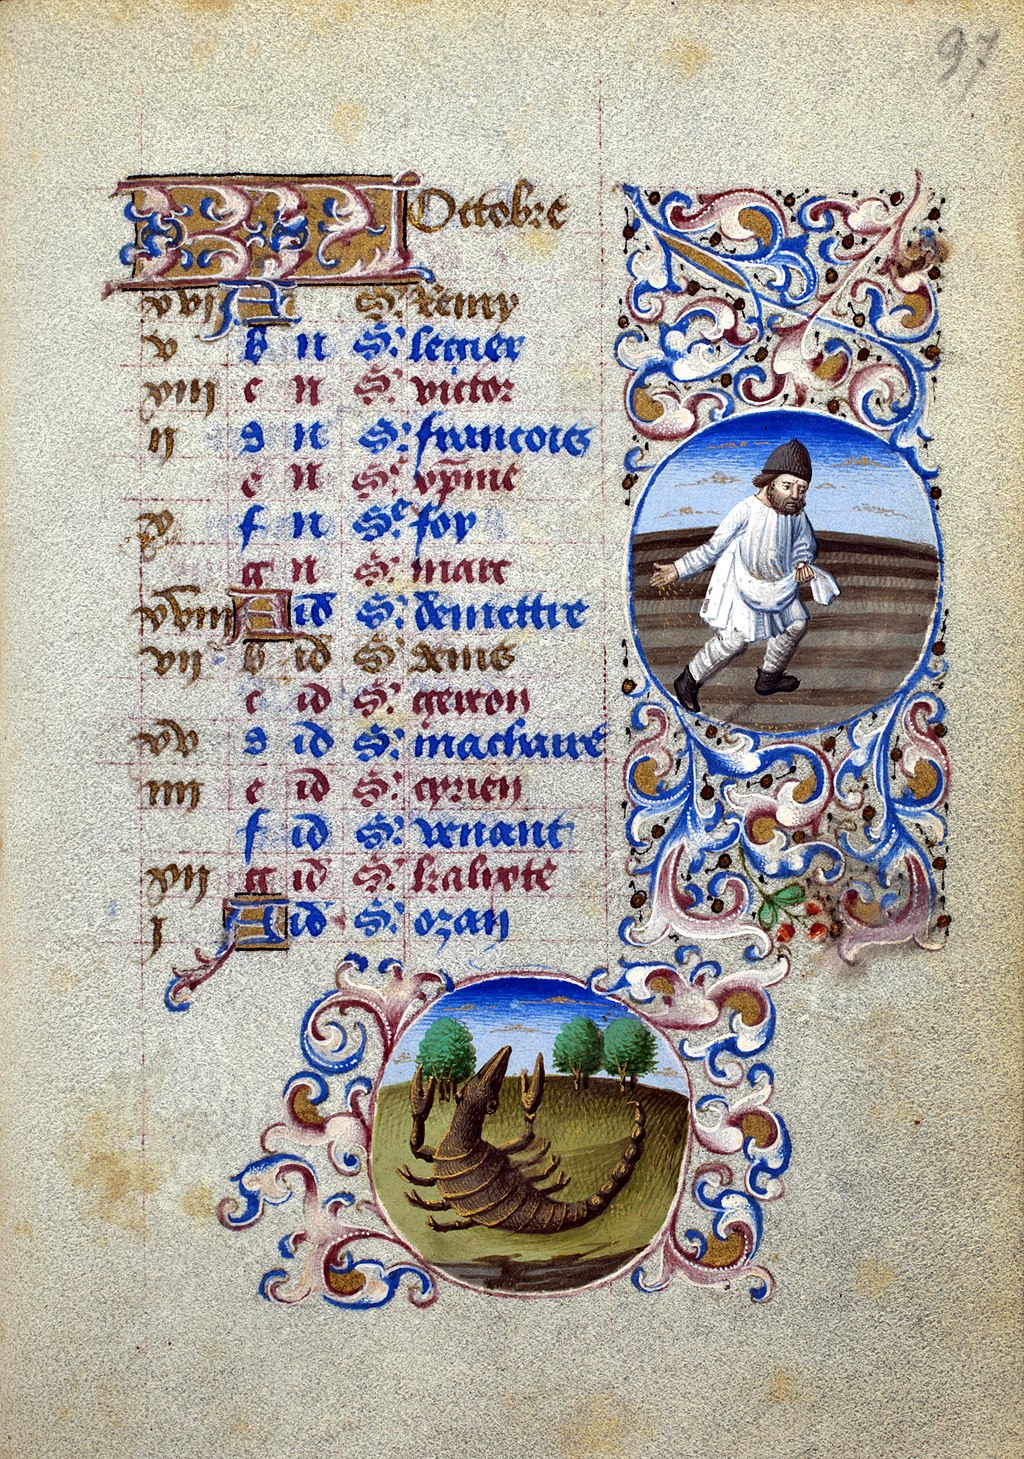 97
KL Octobre
xvi A Sᵗ Remy
v b n Sᵗ legier
xiii c n Sᵗ victor
ii d n Sᵗ francois
e n Sᵉ
x f n Sᵉ foy
g n Sᵗ marc
xviii A id Sᵗ demettre
vii b id Sᵗ denis
c id Sᵗ gerron
xv d id Sᵗ machaire
iiii e id Sᵗ cyrien
f id Sᵗ venant
xii g id Sᵗ kalixte
i A id Sᵗ ozan